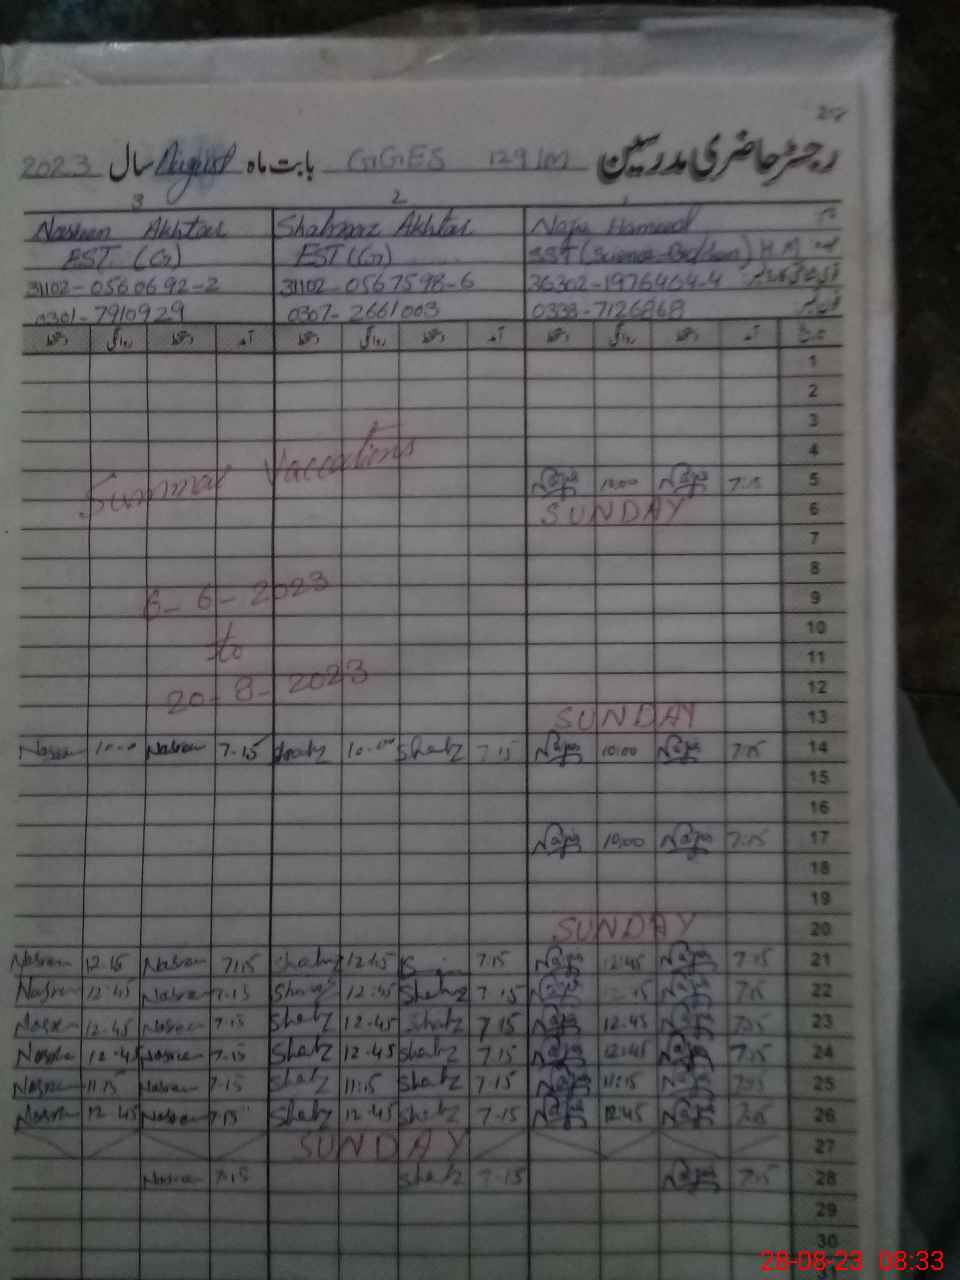 رجسٹر حاضری مدرسین GGES 129/M بابت ماہ August سال 2023
3 2 1
Nasreen Akhtar Shahnaz Akhtar Najia Hameed
EST (G) EST (G) SST (Science) H.M
31102-0560692-2 31102-0567598-6 36302-1976464-4
0301-7910929 0307-2661003 0333-7126868
دستخط روانگی دستخط آمد دستخط روانگی دستخط آمد دستخط روانگی دستخط آمد
1
2
3
4
Summar Vaccations
Najia 10:00 Najia 7:15 5
SUNDAY 6
7
8
6-6-2023 9
10
to 11
20-8-2023 12
SUNDAY 13
Nasreen 10:00 Nasreen 7.15 Shahz 10:00 Shahz 7.15 Najia 10:00 Najia 7:15 14
15
16
Najia 10:00 Najia 7:15 17
18
19
SUNDAY 20
Nasreen 12:45 Nasreen 7:15 Shahz 12:45 7.15 Najia 12:45 Najia 7:15 21
Nasreen 12:45 Nasreen 7.15 Shahz 12:45 Shahz 7.15 Najia Najia 7:15 22
Nasreen 12.45 Nasreen 7.15 Shahz 12.45 Shahz 7.15 Najia 12.45 Najia 7:15 23
Nasreen 12.45 Nasreen 7.15 Shahz 12.45 Shahz 7.15 Najia 12:45 Najia 7.15 24
Nasreen 11:15 Nasreen 7.15 Shahz 11:15 Shahz 7.15 Najia 11:15 Najia 7:15 25
Nasreen 12.45 Nasreen 7.15 Shahz 12.45 Shahz 7.15 Najia 12:45 Najia 7:15 26
SUNDAY 27
Nasreen 7.15 Shahz 7.15 Najia 7:15 28
29
30
28-08-23 08:33